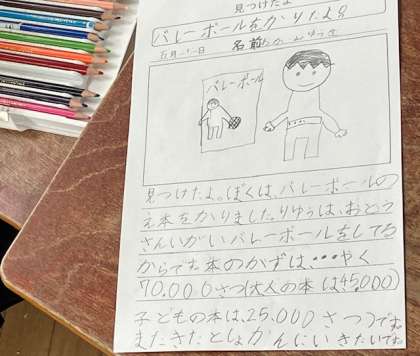 見つけたよ
バレーボールをかりたよ。
名前
バレーボール
見つけたよ。ぼくは、バレーボールの
え本をかりました。りゆうは、おとう
さんいがいバレーボールをしてる
からです。本のかずは、・・・やく
70.000さつ(大人の本は、45,000)
子どもの本は、25.000さつ)です。
またきたとしょかんにいきたいです